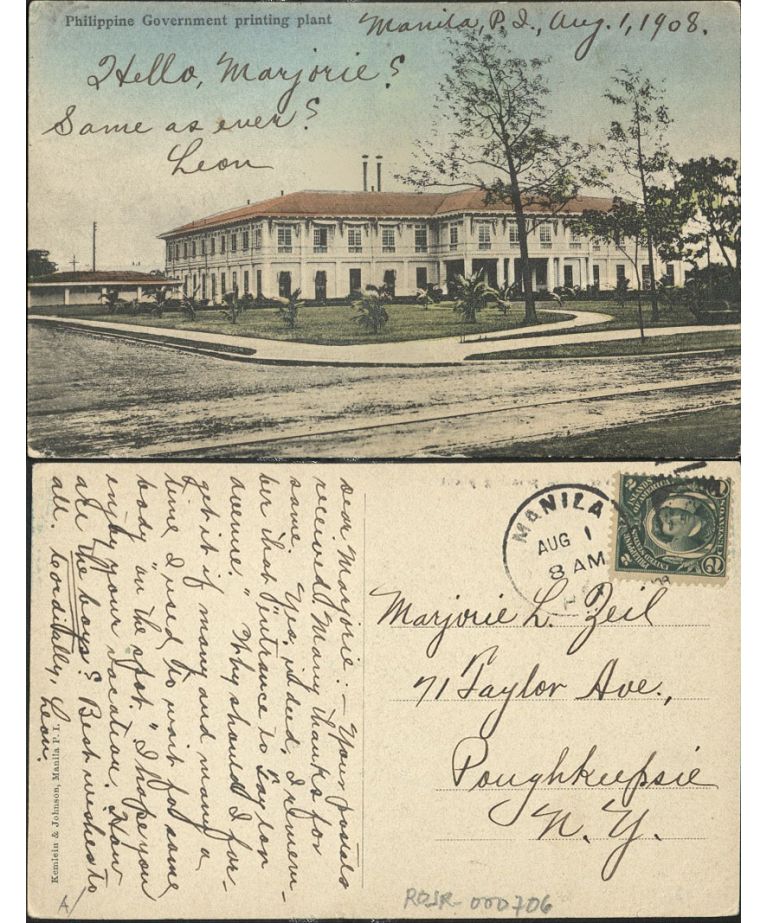 Philippine Government printing plant
Manila, P.I., Aug. 1, 1908.
Hello, Marjorie?
Same as ever?
Leon
Dear Marjorie:— Your postals
received. Many thanks for
same. Yes, indeed, I remem-
ber that "entrance to Taylor
avenue." Why should I for-
get it if many and many a
time I used to wait for some
body "on the spot." I hope you
enjoy your vacation. How
are the boys? Best wishes to
all. Cordially, Leon.
Kemlein & Johnson, Manila P. I.
MANILA
AUG 1
8 AM
PHILIPPINE ISLANDS
UNITED STATES OF AMERICA
2 CENTAVOS 2
Marjorie L. Zeil
71 Taylor Ave.,
Poughkeepsie
N. Y.
A/
ROSR-000706